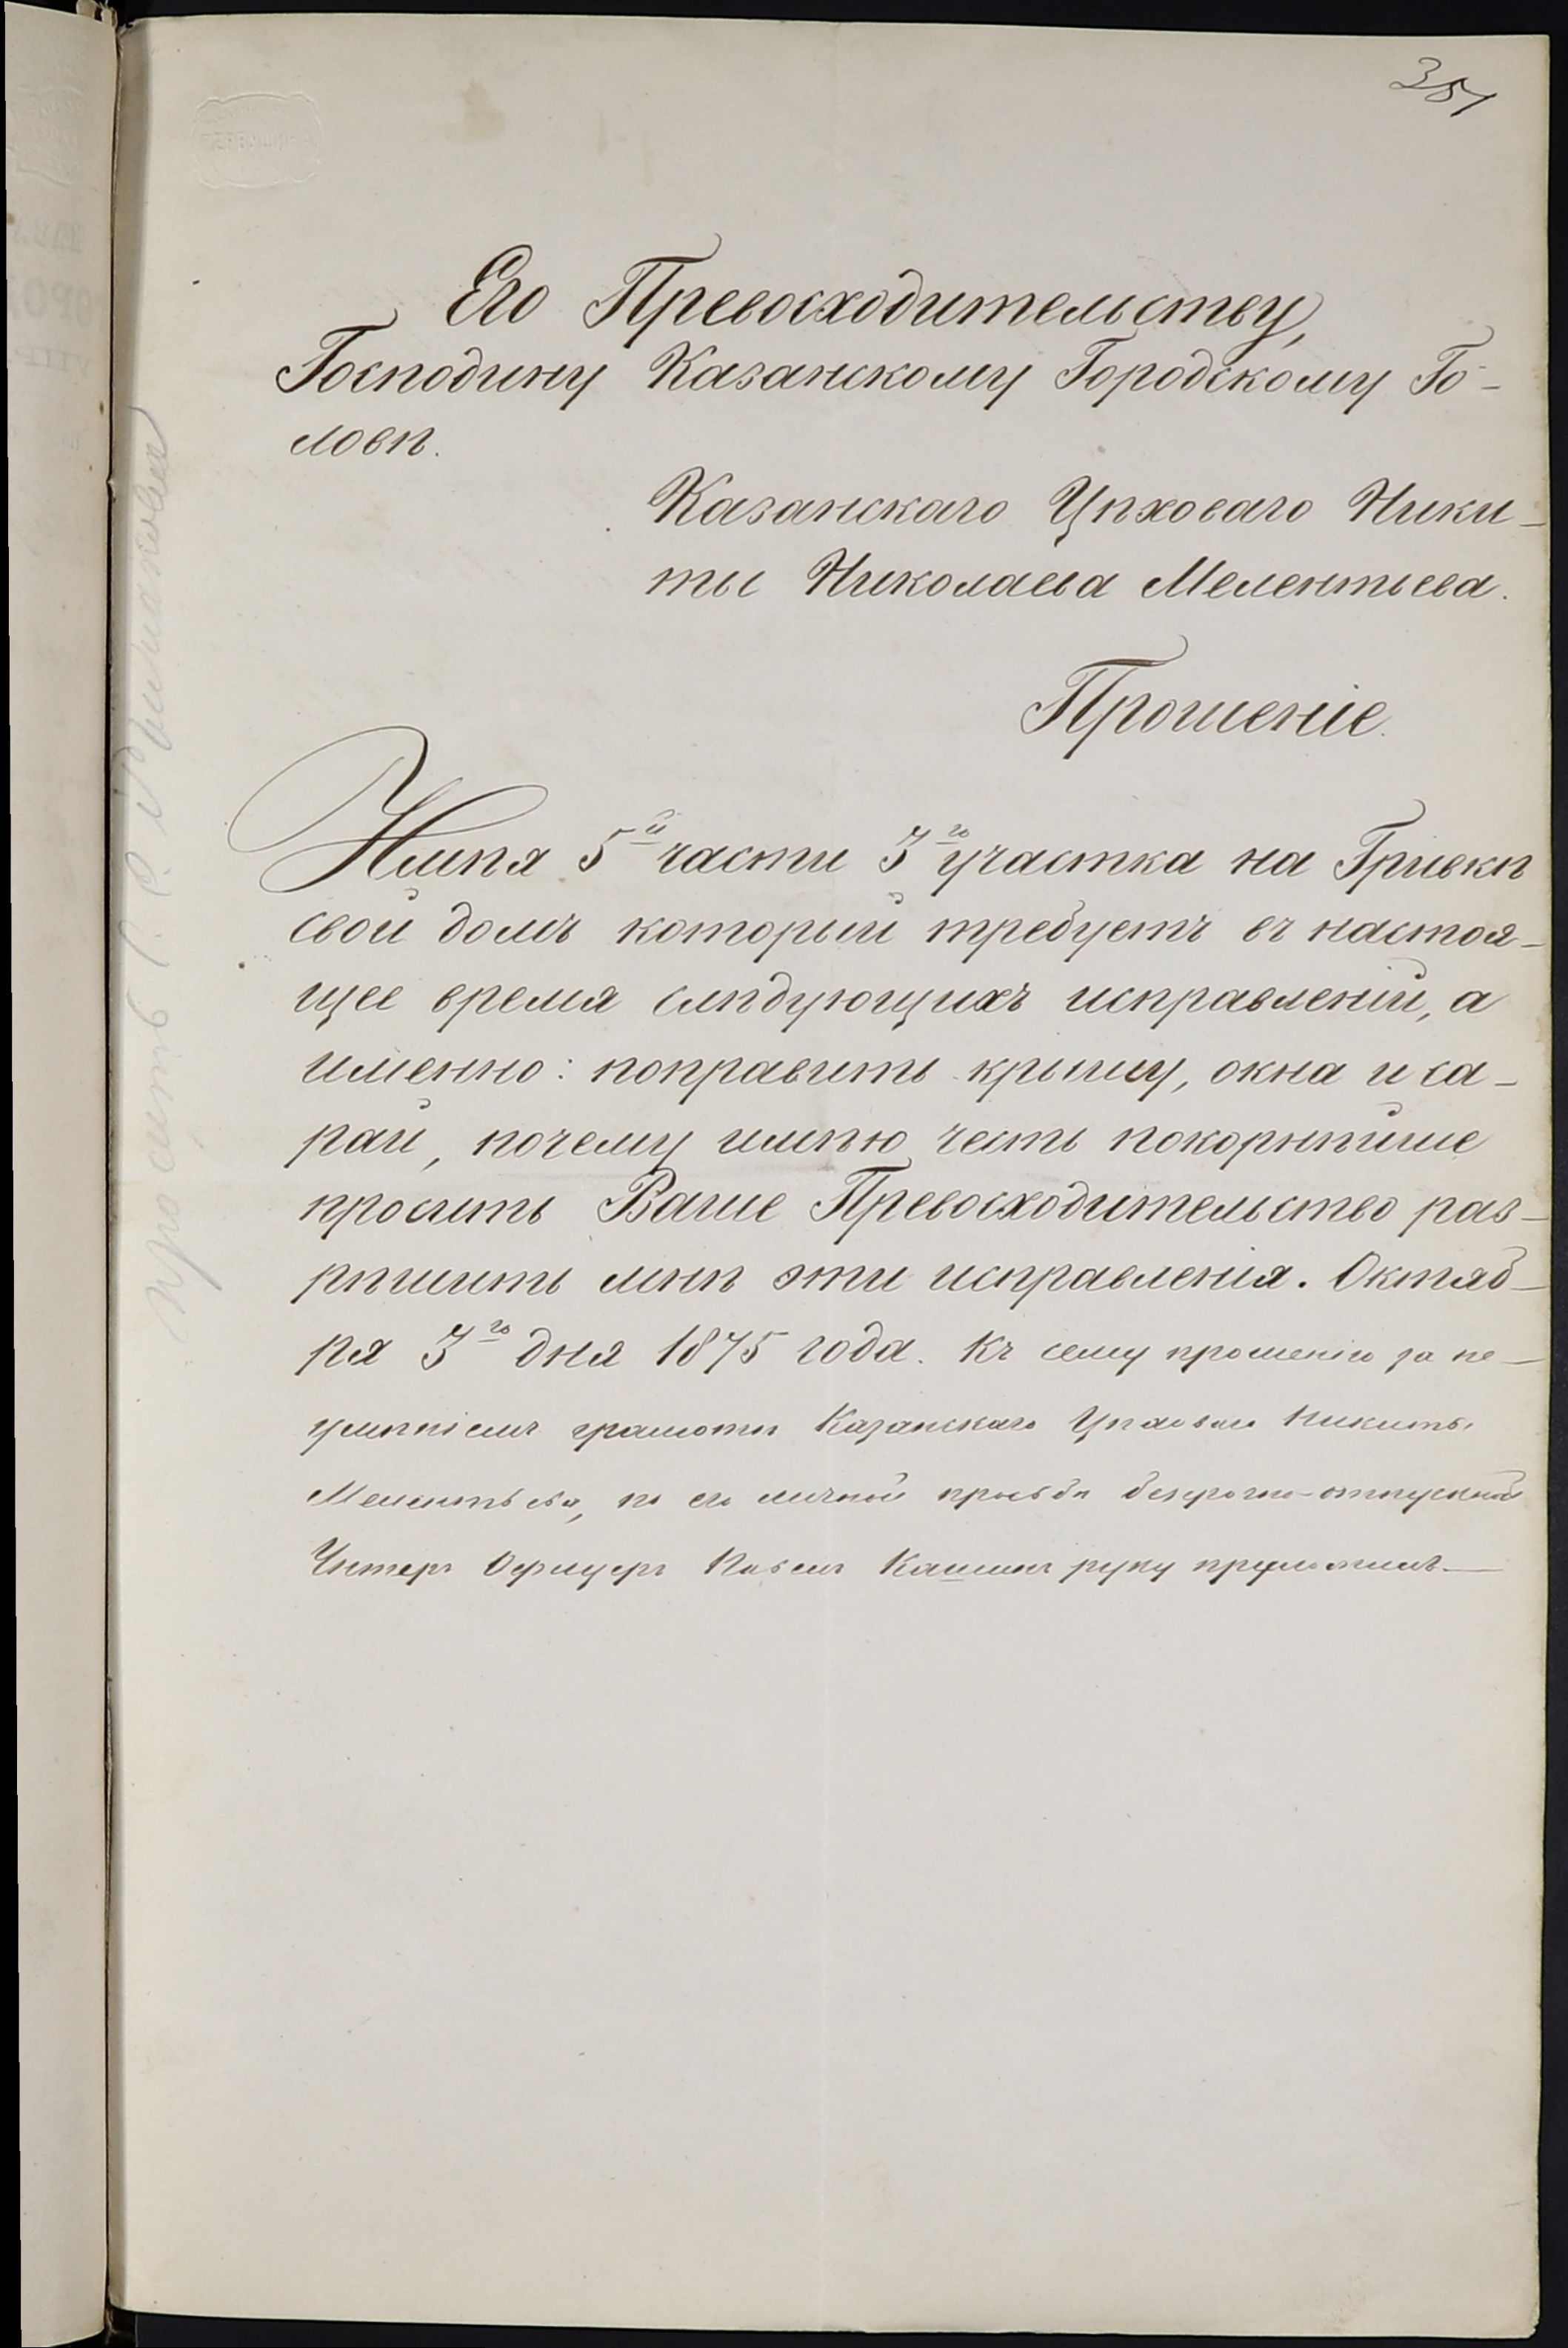 351
Его Превосходительству,
Господину Казанскому Городскому Го-
ловѣ.
Казанскаго Цѣховаго Ники-
ты Николаева Мелентьева.
Прошеніе.
Имѣя 5й части 3го участка на Гривкѣ
свой домъ который требуетъ въ настоя-
щее время слѣдующихъ исправленій, а
именно: поправить крышу, окна и са-
рай, почему имѣю честь покорнѣйше
просить Ваше Превосходительство раз-
рѣшить мнѣ эти исправленія. Октяб-
ря 3го дня 1875 года. Къ сему прошенію за не-
умѣніемъ грамоты Казанскаго Цѣховаго Никиты
Мелентьева, по его личной просьбѣ безсрочно-отпускной
Унтеръ Офицеръ Павелъ Кашинъ руку приложилъ.
проситъ